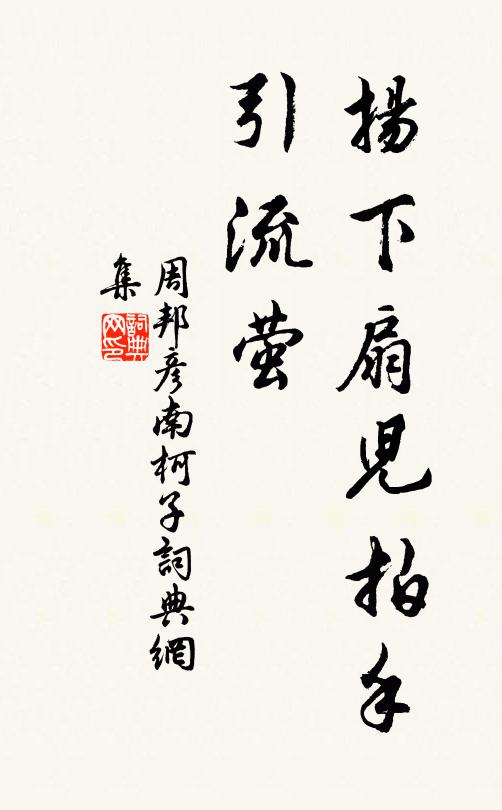 揚下扇兒拍手
引流螢
周邦彦南柯子詞典網
集
詞典
网印